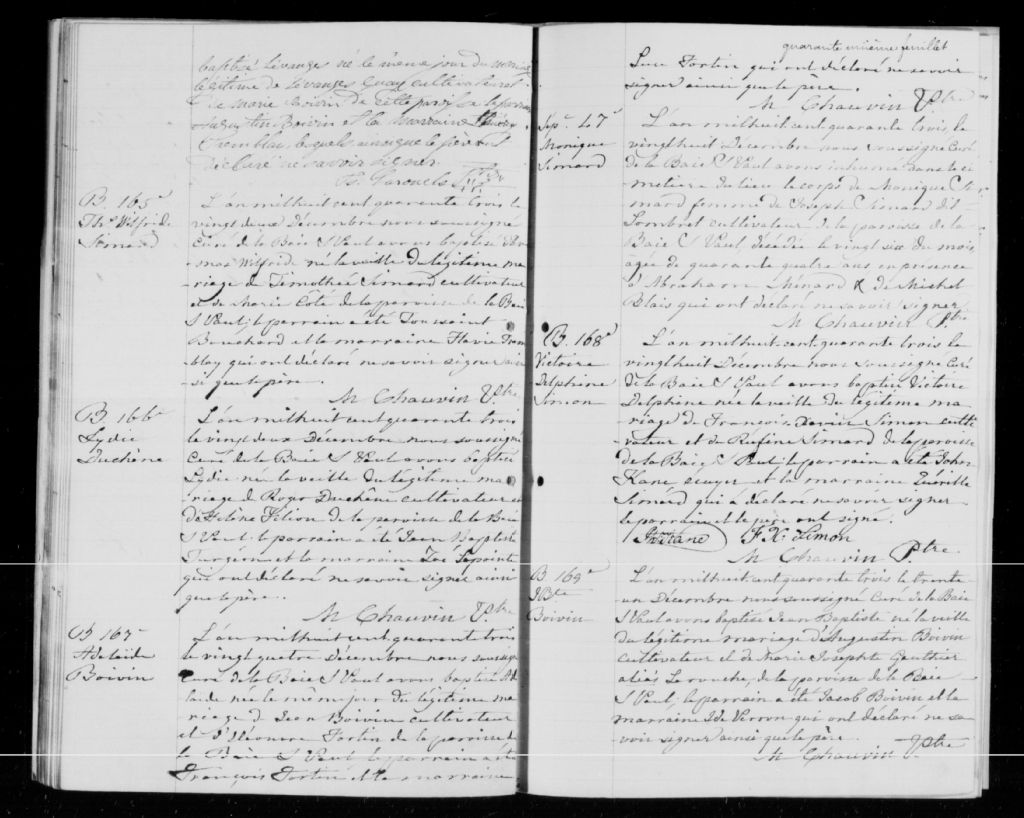 baptisé Evanges né le même jour du mariage
légitime de Evanges Guay cultivateur et
de Marie Boivin de cette paroisse le parrain
Augustin Boivin et la marraine
Tremblay, lesquels ainsi que le père ont
déclaré ne savoir signer
Ptre
B. 165e
Ths Wilfride
Simard
L'an mil huit cent quarante trois le
vingt deux Décembre nous soussigné
Curé de la Baie St Paul avons baptisé Tho
mas Wilfride né la veille du légitime ma
riage de Timothée Simard cultivateur
et de Marie Côté de la paroisse de la Baie
St Paul; le parrain a été Toussaint
Bouchard et la marraine Flavie Trem
blay qui ont déclaré ne savoir signer ain
si que le père.
M Chauvin Ptre.
B 166e
Lydie
Duchêne
L'an mil huit cent quarante trois
le vingt deux Décembre nous soussigné
Curé de la Baie St Paul avons baptisé
Lydie née la veille du légitime ma
riage de Roger Duchêne cultivateur et
de Hélène Filion de la paroisse de la Baie
St Paul. le parrain a été Jean Baptiste
Turgeon et la marraine Zoé Lapointe
qui ont déclaré ne savoir signer ainsi
que le père.
M Chauvin Ptre
B 167e
Adelaïde
Boivin
L'an mil huit cent quarante trois
le vingt quatre Décembre nous soussigné
Curé de la Baie St Paul avons baptisé Adé
laide née le même jour du légitime ma
riage de Jean Boivin cultivateur
et d'Eléonore Fortin de la paroisse de
la Baie St Paul le parrain a été
François Fortin et la marraine
quarante unième feuillet
Luce Fortin qui ont déclaré ne savoir
signer ainsi que le père.
M Chauvin Ptre
Sep. 47e
Monique
Simard
L'an mil huit cent quarante trois, le
vingt huit Décembre nous soussigné Curé
de la Baie St Paul avons inhumé dans le ci
metière du lieu le corps de Monique Si
mard femme de Joseph Simard dit
Lombret cultivateur de la paroisse de la
Baie St Paul décédée le vingt six du mois
âgée de quarante quatre ans en présence
d'Abraham Ménard & de Michel
Blais qui ont déclaré ne savoir signer
M Chauvin Ptre
B. 168e
Victoire
Delphine
Simon
L'an mil huit cent quarante trois le
vingt huit Décembre nous soussigné Curé
de la Baie St Paul avons baptisé Victoire
Delphine née la veille du légitime ma
riage de François Xavier Simon culti
vateur et de Rufine Simard de la paroisse
de la Baie St Paul; le parrain a été John
Kane écuyer et la marraine
Simard qui a déclaré ne savoir signer
le parrain et le père ont signé.
Jn Kane F. X. Simon
M Chauvin Ptre.
B 169e
J Bte
Boivin
L'an mil huit cent quarante trois le trente
un Décembre nous soussigné Curé de la Baie
St Paul avons baptisé Jean Baptiste né la veille
du légitime mariage d'Augustin Boivin
cultivateur et de Marie Josephte Gauthier
alias Larouche, de la paroisse de la Baie
St Paul; le parrain a été Jacob Boivin et la
marraine Ide Perron qui ont déclaré ne sa
voir signer ainsi que le père.
M Chauvin Ptre